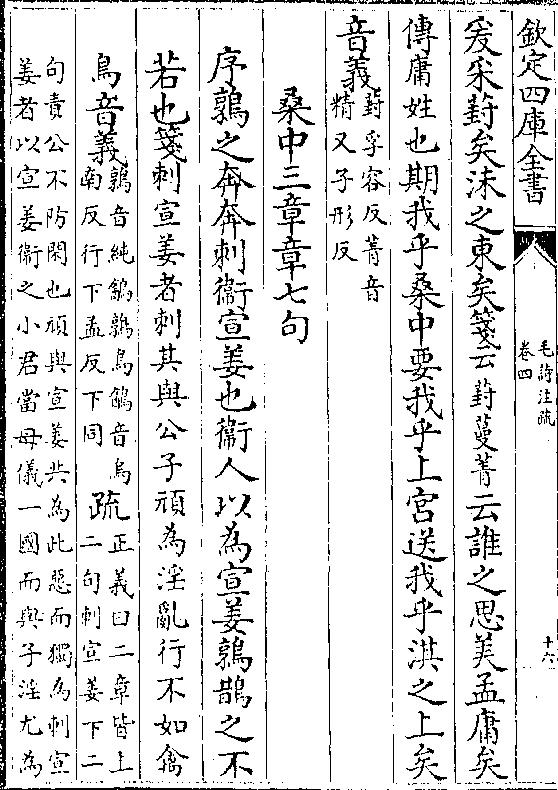 欽定四庫全書
毛詩注疏
卷四
十六
爰采葑矣沬之東矣箋云葑蔓菁云誰之思美孟庸矣
傳庸姓也期我乎桑中要我乎上宮送我乎淇之上矣
音義葑孚容反菁音
精又子形反
桑中三章章七句
序鶉之奔奔刺衞宣姜也衞人以為宣姜鶉鵲之不
若也箋刺宣姜者刺其與公子頑為淫亂行不如禽
鳥音義鶉音純䳺鶉鳥䳺音烏
南反行下孟反下同
疏正義曰二章皆上
二句刺宣姜下二
句責公不防閑也頑與宣姜共為此惡而獨為刺宣
姜者以宣姜衞之小君當母儀一國而與子淫尤為